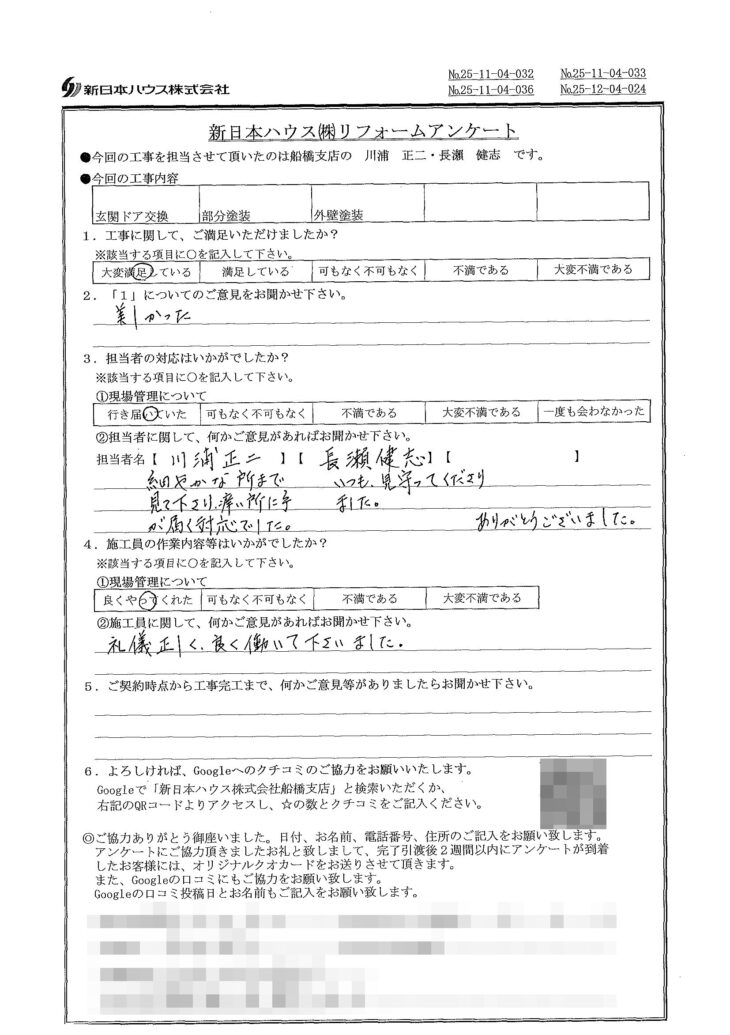 新日本ハウス株式会社
№25-11-04-032 №25-11-04-033
№25-11-04-036 №25-12-04-024
新日本ハウス㈱リフォームアンケート
●今回の工事を担当させて頂いたのは船橋支店の 川浦 正二・長瀬 健志 です。
●今回の工事内容
玄関ドア交換 部分塗装 外壁塗装
1．工事に関して、ご満足いただけましたか？
※該当する項目に○を記入して下さい。
大変満足している 満足している 可もなく不可もなく 不満である 大変不満である
2．「1」についてのご意見をお聞かせ下さい。
美しかった
3．担当者の対応はいかがでしたか？
※該当する項目に○を記入して下さい。
①現場管理について
行き届いていた 可もなく不可もなく 不満である 大変不満である 一度も会わなかった
②担当者に関して、何かご意見があればお聞かせ下さい。
担当者名【 川浦正二 】【 長瀬健志 】【 】
細やかな所まで いつも、見守ってくださり
見て下さり、痒い所に手 ました。
が届く対応でした。 ありがとうございました。
4．施工員の作業内容等はいかがでしたか？
※該当する項目に○を記入して下さい。
①現場管理について
良くやってくれた 可もなく不可もなく 不満である 大変不満である
②施工員に関して、何かご意見があればお聞かせ下さい。
礼儀正しく、良く働いて下さいました。
5．ご契約時点から工事完工まで、何かご意見等がありましたらお聞かせ下さい。
6．よろしければ、Googleへのクチコミのご協力をお願いいたします。
Googleで「新日本ハウス株式会社船橋支店」と検索いただくか、
右記のQRコードよりアクセスし、☆の数とクチコミをご記入ください。
◎ご協力ありがとう御座いました。日付、お名前、電話番号、住所のご記入をお願い致します。
アンケートにご協力頂きましたお礼と致しまして、完了引渡後２週間以内にアンケートが到着
したお客様には、オリジナルクオカードをお送りさせて頂きます。
また、Googleの口コミにもご協力をお願い致します。
Googleの口コミ投稿日とお名前もご記入をお願い致します。